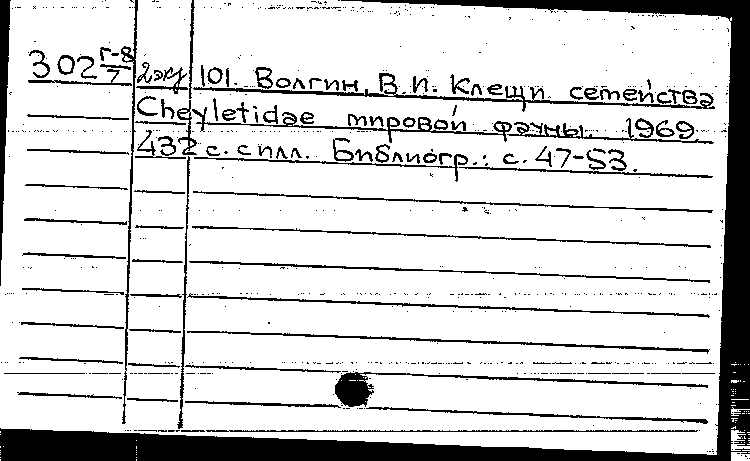 302 Г-8/7 2 экз 101. Волгин, В.И. Клещи семейства
Cheyletidae мировой фауны. 1969.
432 с. с илл. Библиогр.: с. 47-53.